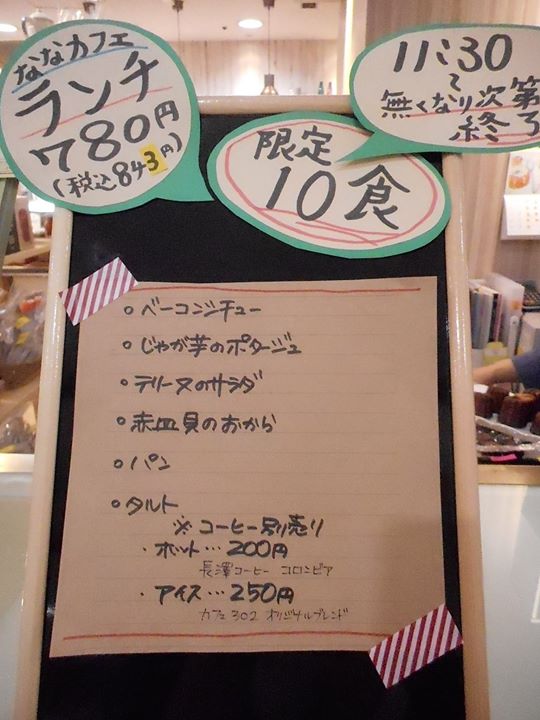 ななカフェ
ランチ
780円
(税込843円)
11:30
〜
無くなり次第
終了
限定
10食
○ ベーコンシチュー
○ じゃが芋のポタージュ
○ テリーヌのサラダ
○ 赤皿貝のおから
○ パン
○ タルト
※ コーヒー別売り
・ホット…200円
長澤コーヒー コロンビア
・アイス…250円
カフェ302 オリジナルブレンド